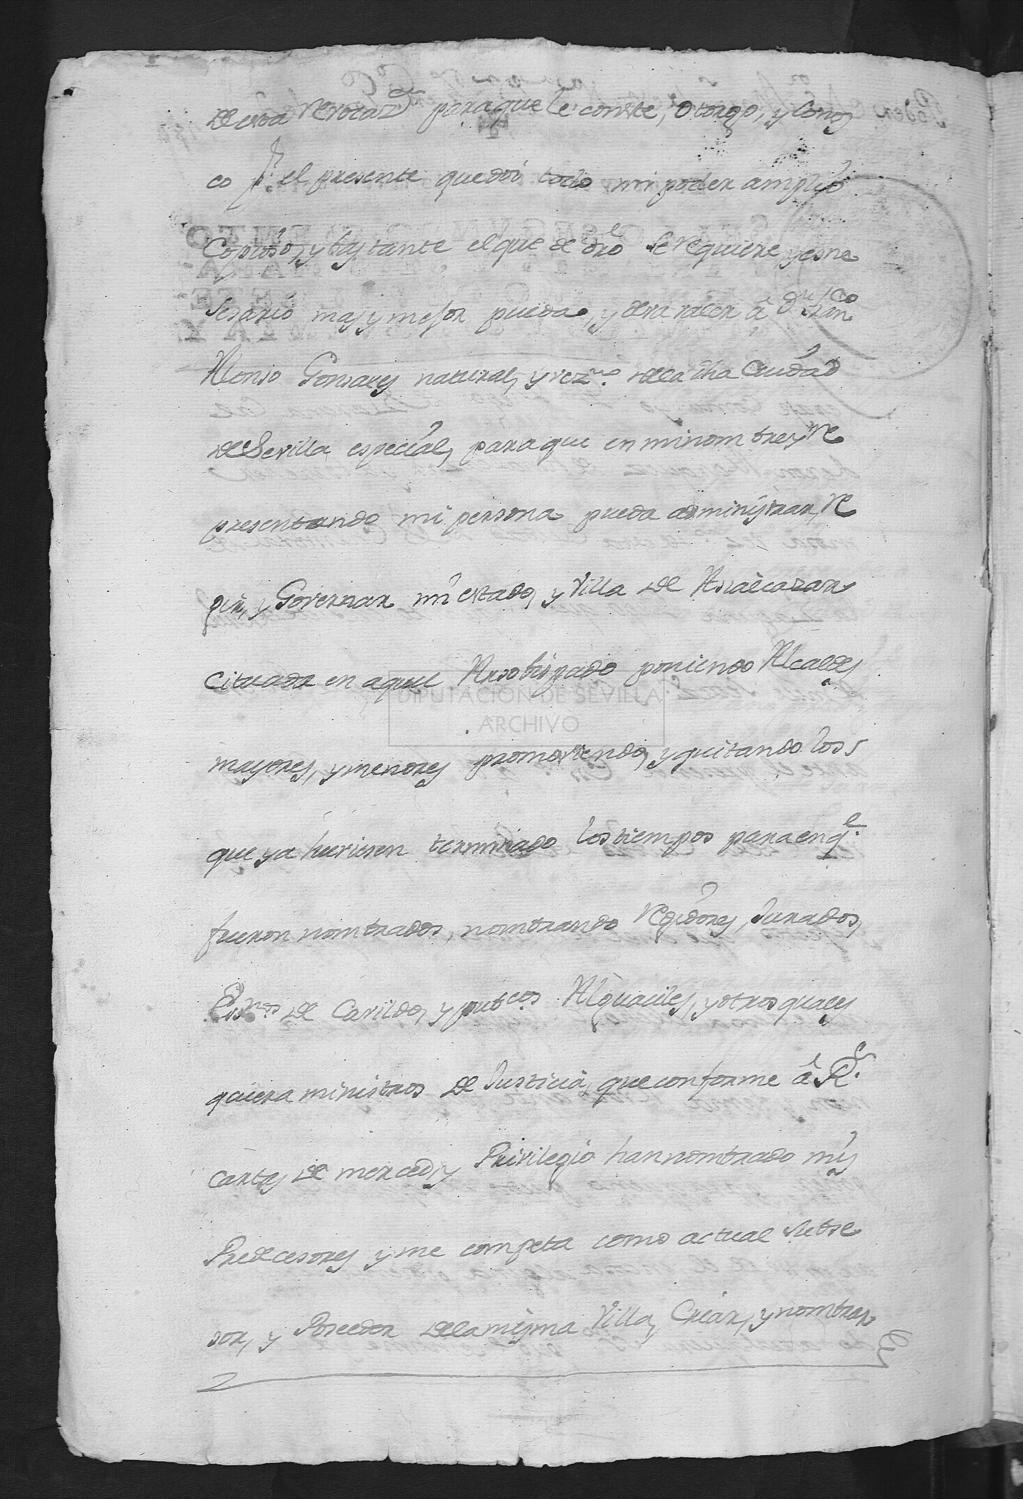 de esta Revocaz.on para que le conste, Otorgo, y Conos
co p.r el presente que doi todo mi poder amplio
Copioso, y bastante el que de dro se requiere y es ne
sesario mas y mejor pueda, y deva valer â d.n Fran.co
Alonso Gonsales natural, y vez.no de la dha Ciudad
de Sevilla especial, para que en mi nombre, y Re
presentando mi persona pueda administrar, Re
gir, y Governar mi estado, y Villa de
cituada en aquel Arsobispado poniendo Alcaldes
mayores, y menores promoviendo, y quitando los
que ya huviesen terminado los tiempos para en q.e
fueron nombrados, nombrando Regidores, Jurados,
Ess.nos de Cavildo, y pub.cos Alguaciles, y otros quales
quiera ministros de Justicia, que conforme â R.s
cartas de merced, y Privilegio han nombrado mis
Predecesores y me competa como actual Subse
sor, y Poseedor de la misma Villa, Criar, y nombrar
DIPUTACIÓN DE SEVILLA
ARCHIVO